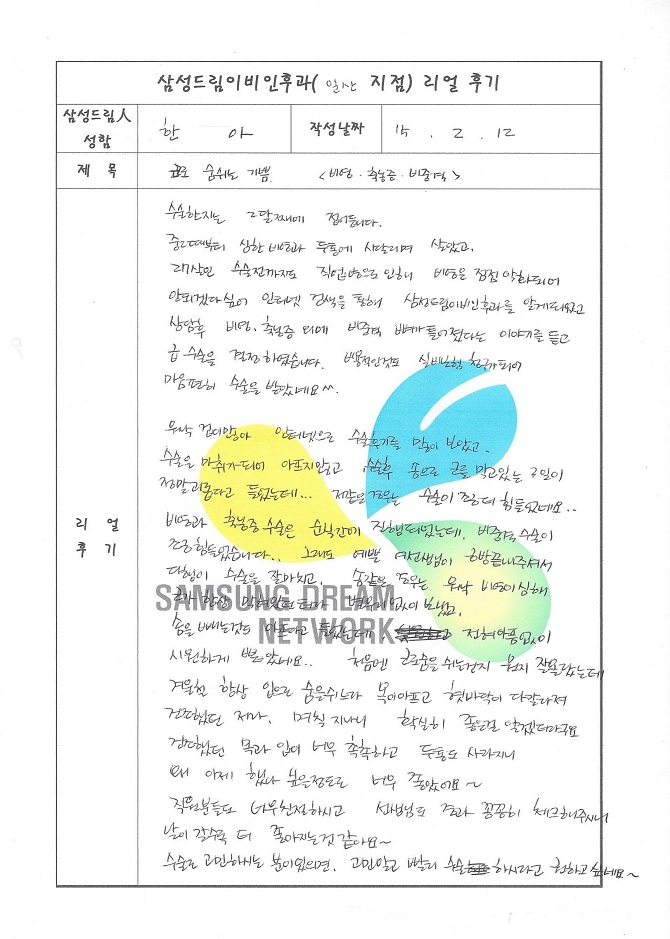 삼성드림이비인후과( 일산 지점) 리얼 후기
삼성드림人 성함
한 아
작성날짜
15 . 2 . 12
제 목
코로 숨쉬는 기쁨 <비염 · 축농증 · 비중격>
리 얼 후 기
수술한지는 2달째에 접어듭니다.
중2때부터 심한 비염과 두통에 시달리며 살았고.
27살인 수술전까지도 직업상으로 인해 비염은 점점 악화되어
안되겠다싶어 인터넷 검색을 통해 삼성드림이비인후과를 알게되었고
상담후 비염, 축농증 외에 비중격 뼈가 틀어졌다는 이야기를 듣고
급 수술을 결정하였습니다. 비용적인것도 실비보험 청구가되어
마음편히 수술을 받았네요^^.
워낙 겁이많아 인터넷으로 수술후기를 많이 보았고.
수술은 마취가되어 아프지않고 수술후 솜으로 코를 막고있는 2일이
정말괴롭다고 들었는데... 저같은경우는 수술이 조금더 힘들었네요..
비염과 축농증 수술은 순식간에 진행되었는데. 비중격 수술이
조금힘들었습니다.. 그래도 예쁜 여선생님이 금방끝내주셔서
다행히 수술을 잘마치고. 솜같은 경우는 워낙 비염이심해
코가 항상 막혀있던터라 보냈고.
SAMSUNG DREAM NETWORK
솜을 빼는것도 아프다고 들었는데 전혀아픔없이
시원하게 뺐았네요.. 처음엔 코로숨을 쉬는건지 뭔지 잘몰랐는데
겨울철 항상 입으로 숨을쉬느라 목이아프고 혓바닥이 다갈라져
건조했던 저라. 며칠 지나니 확실히 좋은걸 알겠더라구요
건조했던 목과 입이 너무 촉촉하고 두통도 사라지니
왜 이제 했나 싶을정도로 너무 좋았어요~
직원분들도 너무친절하시고 선생님도 경과 꼼꼼히 체크해주시니
날이 갈수록 더 좋아지는것 같아요~
수술로 고민하시는 분이있으면. 고민말고 빨리 수술 하시라고 권하고 싶네요~